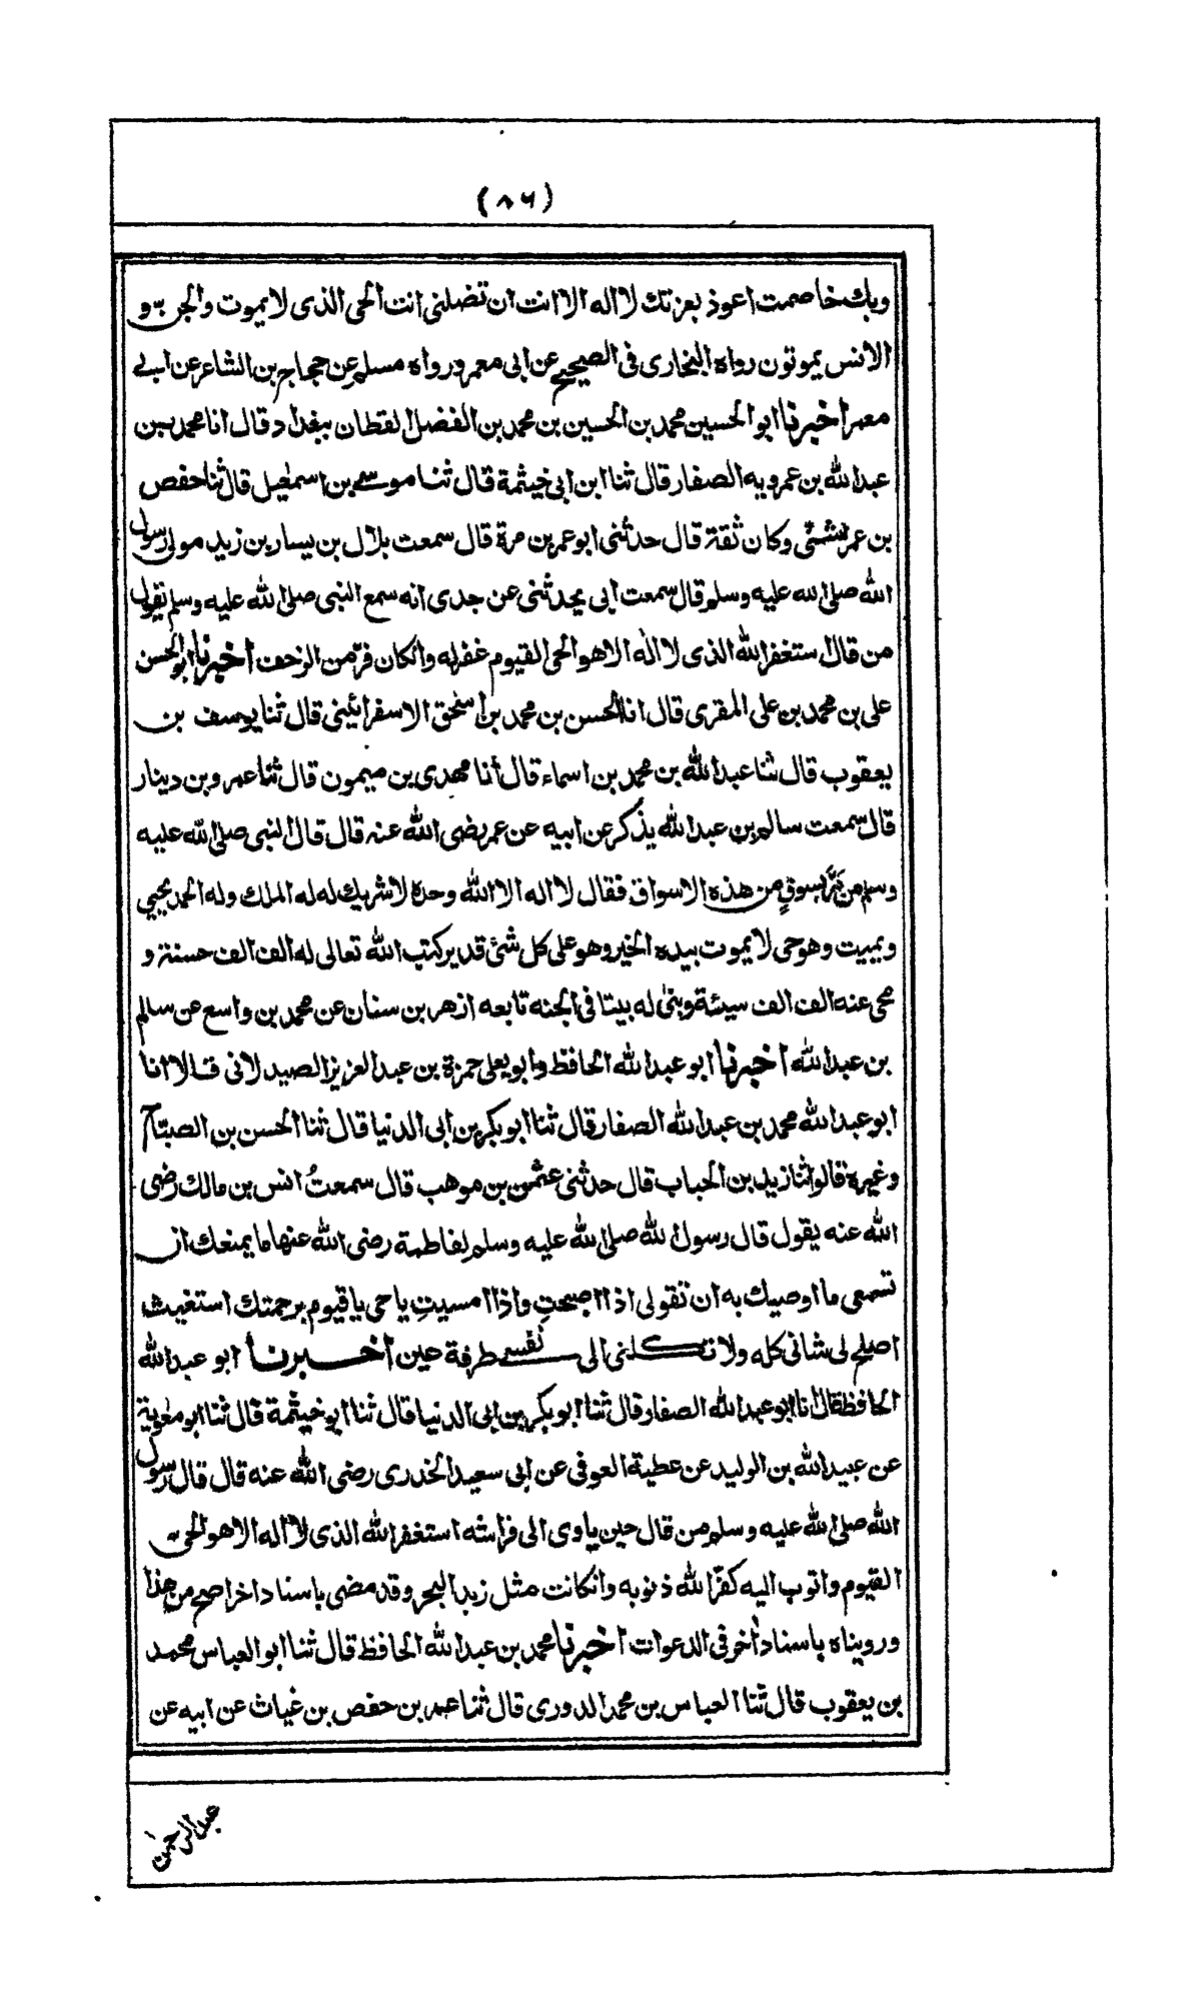 (۸۶)
وبك خاصمت اعوذ بعزتك لا اله الا انت ان تضلنی انت الحی الذی لا یموت والجن و
الانس یموتون رواه البخاری فی الصحیح عن ابی معمر ورواه مسلم عن حجاج بن الشاعر عن ابی
معمر اخبرنا ابو الحسین محمد بن الحسین بن محمد بن الفضل القطان ببغداد قال انا محمد بن
عبد الله بن عمرویه الصفار قال ثنا ابن ابی خیثمة قال ثنا موسی بن اسمعیل قال ثنا حفص
بن عمر الشنی وکان ثقة قال حدثنی ابو عمر بن مرة قال سمعت بلال بن یسار بن زید مولی رسول
الله صلی الله علیه وسلم قال سمعت ابی یحدثنی عن جدی انه سمع النبی صلی الله علیه وسلم یقول
من قال استغفر الله الذی لا اله الا هو الحی القیوم غفر له وانکان فر من الزحف اخبرنا ابو الحسن
علی بن محمد بن علی المقری قال انا الحسن بن محمد بن اسحق الاسفرائینی قال ثنا یوسف بن
یعقوب قال ثنا عبد الله بن محمد بن اسماء قال انا مهدی بن میمون قال ثنا عمرو بن دینار
قال سمعت سالم بن عبد الله یذکر عن ابیه عن عمر رضی الله عنه قال قال النبی صلی الله علیه
وسلم من مر بسوق من هذه الاسواق فقال لا اله الا الله وحده لا شریك له له الملك وله الحمد یحیی
ویمیت وهو حی لا یموت بیده الخیر وهو علی کل شئ قدیر کتب الله تعالی له الف الف حسنة و
محی عنه الف الف سیئة وبنی له بیتا فی الجنه تابعه ازهر بن سنان عن محمد بن واسع عن سالم
بن عبد الله اخبرنا ابو عبد الله الحافظ وابو یعلی حمزة بن عبد العزیز الصیدلانی قالا انا
ابو عبد الله محمد بن عبد الله الصفار قال ثنا ابو بکر بن ابی الدنیا قال ثنا الحسن بن الصباح
وغیره قالوا ثنا زید بن الحباب قال حدثنی عثمن بن موهب قال سمعتُ انس بن مالك رضی
الله عنه یقول قال رسول الله صلی الله علیه وسلم لفاطمة رضی الله عنها ما یمنعك ان
تسمعی ما اوصیك به ان تقولی اذا اصبحتِ واذا امسیتِ یا حی یا قیوم برحمتك استغیث
اصلح لی شانی کله ولا تکلنی الی نفسی طرفة حین اخبرنا ابو عبد الله
الحافظ قال انا ابو عبد الله الصفار قال ثنا ابو بکر بن ابی الدنیا قال ثنا ابو خیثمة قال ثنا ابو معٰویة
عن عبید الله بن الولید عن عطیة العوفی عن ابی سعید الخدری رضی الله عنه قال قال رسول
الله صلی الله علیه وسلم من قال حین یاوی الی فراشه استغفر الله الذی لا اله الا هو الحی
القیوم واتوب الیه کفر الله ذنوبه وانکانت مثل زبد البحر وقد مضی باسناد اخر اصح من هذا
ورویناه باسناد اٰخر فی الدعوات اخبرنا محمد بن عبد الله الحافظ قال ثنا ابو العباس محمد
بن یعقوب قال ثنا العباس بن محمد الدوری قال ثنا عمر بن حفص بن غیاث عن ابیه عن
عبد الرحمٰن